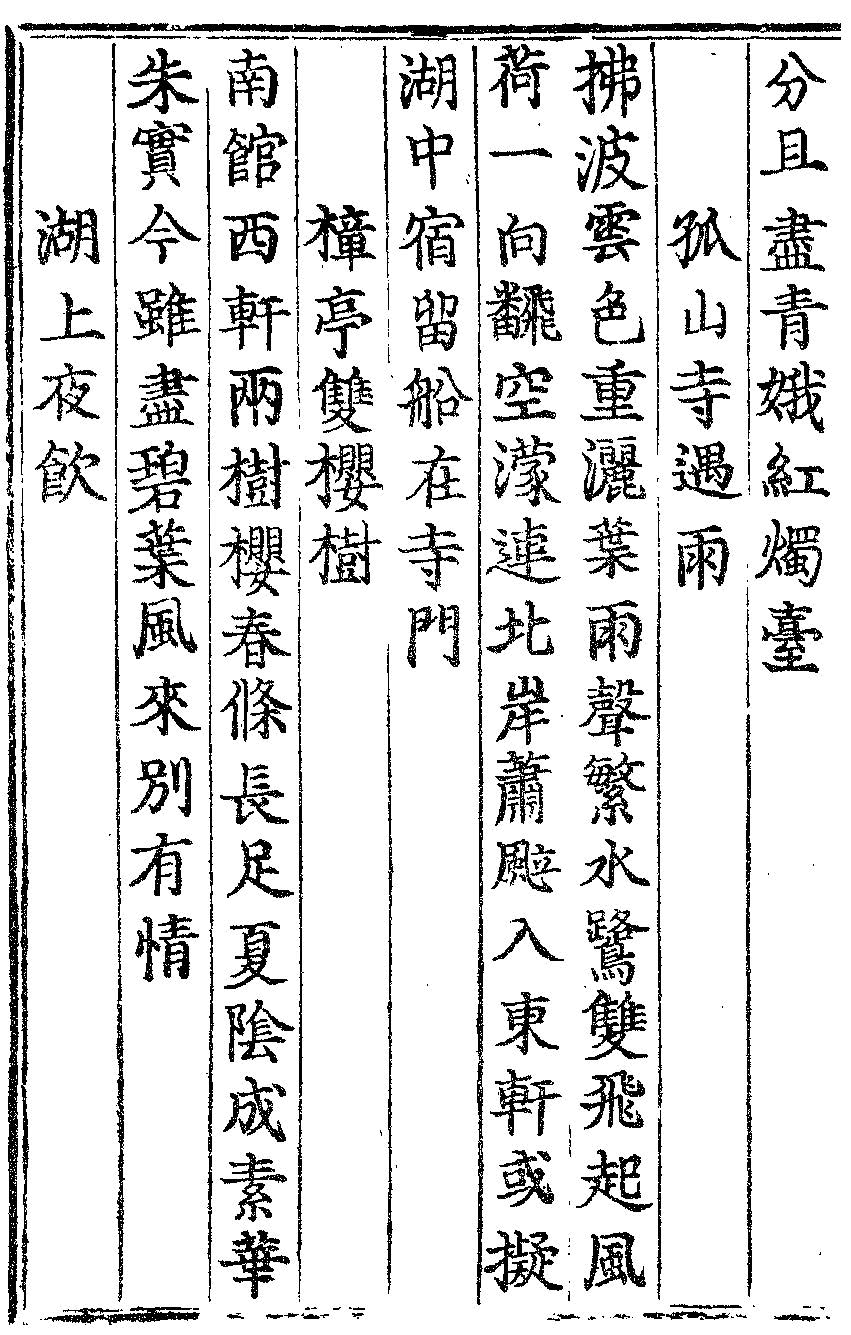 分且盡青娥紅燭臺
孤山寺遇雨
拂波雲色重灑葉雨聲繁水鷺雙飛起風
荷一向飜空濛連北岸蕭颭入東軒或擬
湖中宿留船在寺門
樟亭雙櫻樹
南館西軒兩樹櫻春條長足夏陰成素華
朱實今雖盡碧葉風來別有情
湖上夜飲